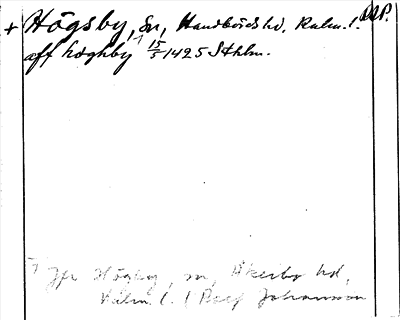 + Högsby, sn, Handbörds hd, Kalm. l. DRP.
aff høghby 15/5 1425 Sthlm.
Jfr Högby, sn, Åkerbo hd,
Kalm. l. ( Johansson